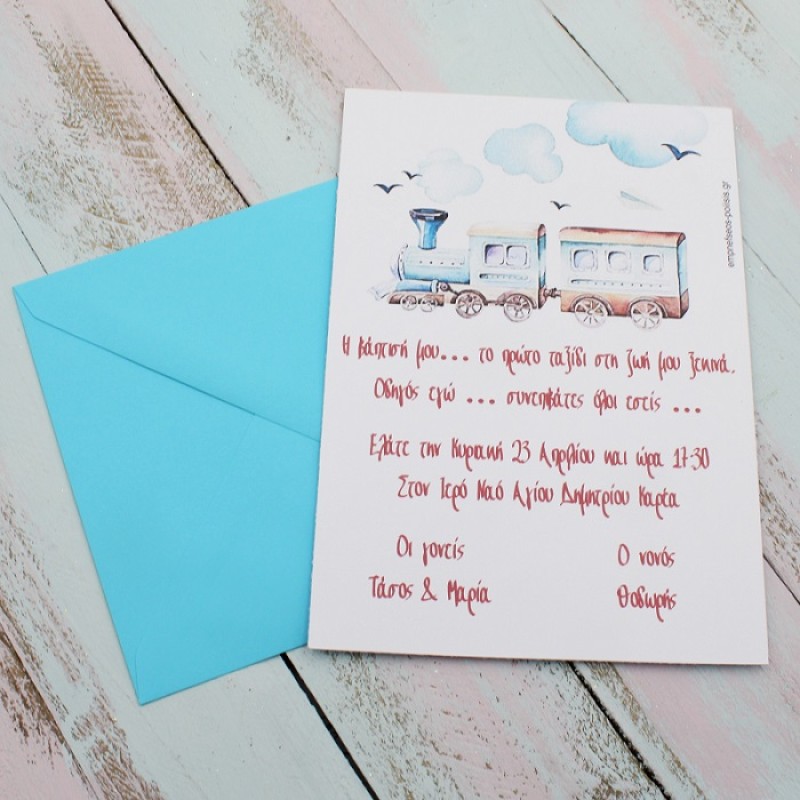 empnefseos-poiisis.gr
Η βάπτισή μου... το πρώτο ταξίδι στη ζωή μου ξεκινά.
Οδηγός εγώ ... συνεπιβάτες όλοι εσείς ...
Ελάτε την Κυριακή 23 Απριλίου και ώρα 17:30
Στον Ιερό Ναό Αγίου Δημητρίου Καρέα
Οι γονείς
Ο νονός
Τάσος & Μαρία
Θοδωρής